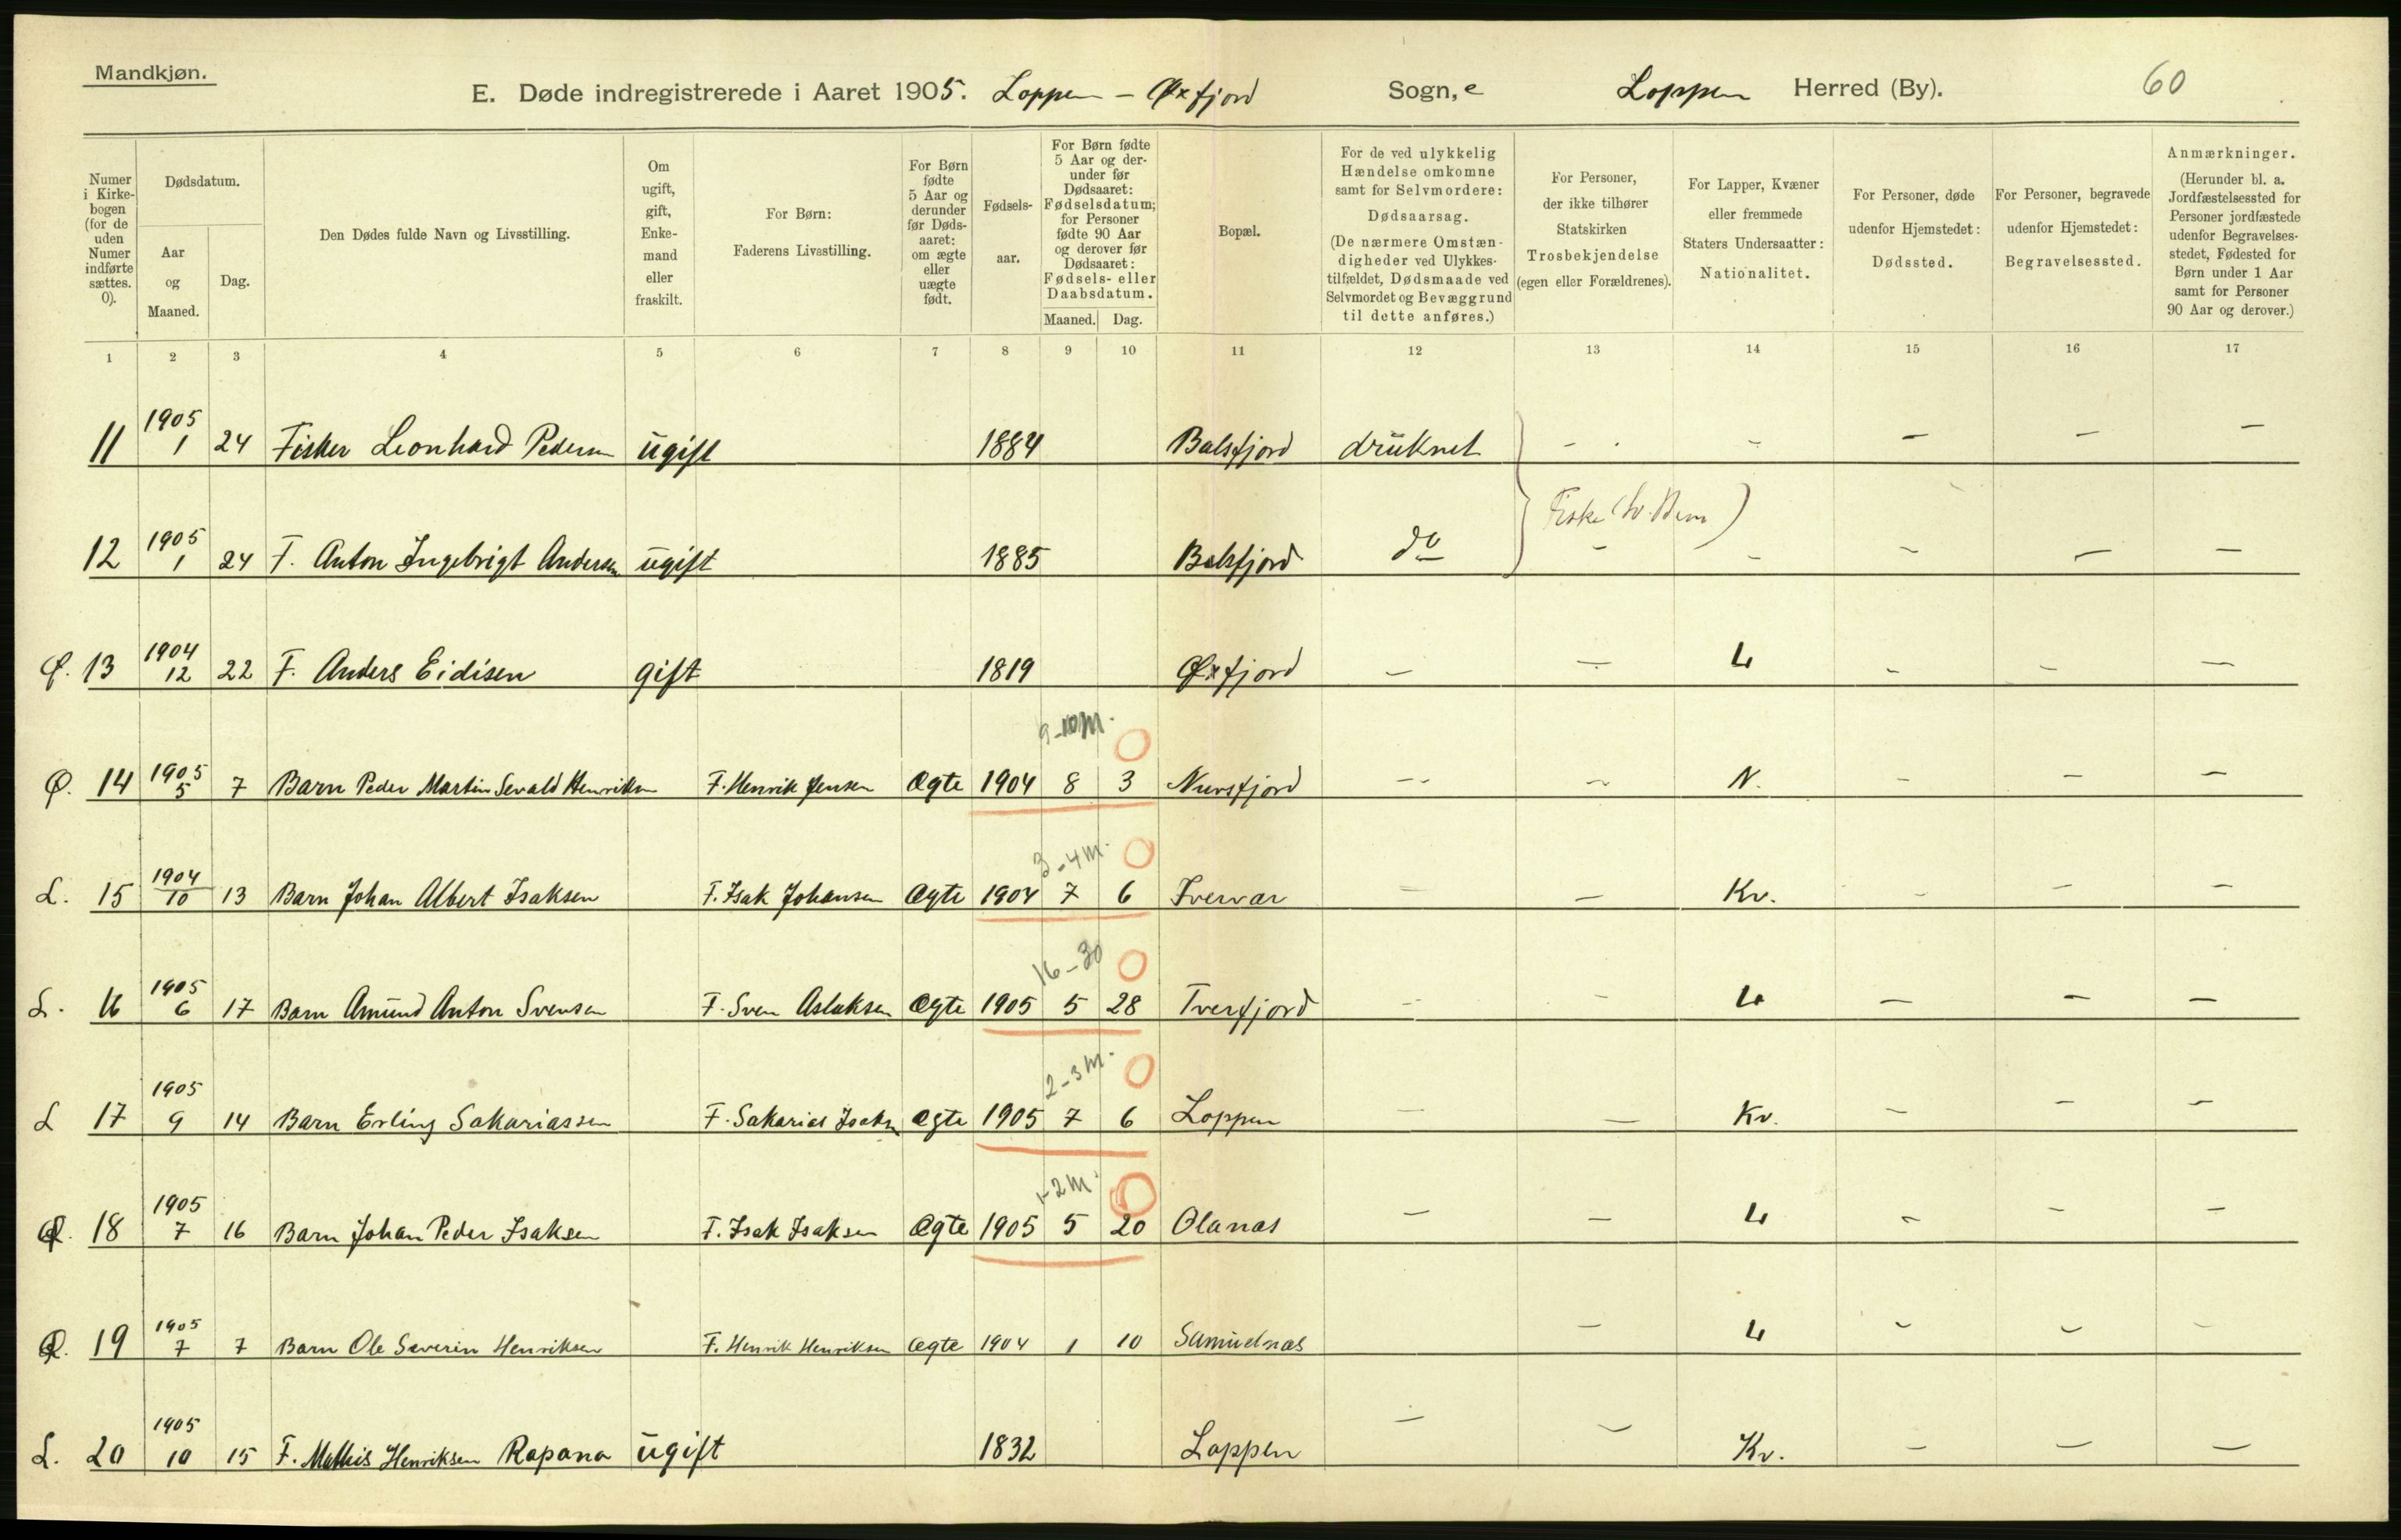 Mandkjøn.
E. Døde indregistrerede i Aaret 1905. Loppen - Øxfjord Sogn,e Loppen Herred (By). 60
Numer i Kirkebogen (for de uden Numer indførte sættes. 0).
Dødsdatum.
Aar og Maaned.
Dag.
Den Dødes fulde Navn og Livsstilling.
Om ugift, gift, Enkemand eller fraskilt.
For Børn: Faderens Livsstilling.
For Børn fødte 5 Aar og derunder før Dødsaaret: om ægte eller uægte født.
Fødselsaar.
For Børn fødte 5 Aar og derunder før Dødsaaret: Fødselsdatum; for Personer fødte 90 Aar og derover før Dødsaaret: Fødsels- eller Daabsdatum.
Maaned. Dag.
Bopæl.
For de ved ulykkelig Hændelse omkomne samt for Selvmordere: Dødsaarsag. (De nærmere Omstændigheder ved Ulykkestilfældet, Dødsmaade ved Selvmordet og Bevæggrund til dette anføres.)
For Personer, der ikke tilhører Statskirken Trosbekjendelse (egen eller Forældrenes).
For Lapper, Kvæner eller fremmede Staters Undersaatter: Nationalitet.
For Personer, døde udenfor Hjemstedet: Dødssted.
For Personer, begravede udenfor Hjemstedet: Begravelsessted.
Anmærkninger. (Herunder bl. a. Jordfæstelsessted for Personer jordfæstede udenfor Begravelsesstedet, Fødested for Børn under 1 Aar samt for Personer 90 Aar og derover.)
1 2 3 4 5 6 7 8 9 10 11 12 13 14 15 16 17
11 1905 1 24 Fisker Leonhard Pedersen ugift 1884 Balsfjord druknet - - - - -
Fiske
12 1905 1 24 F. Anton Ingebrigt Andersen ugift 1885 Balsfjord do - - - - -
Ø. 13 1904 12 22 F. Anders Eidisen gift 1819 Øxfjord - - L - - -
9-10 M.
Ø. 14 1905 5 7 Barn Peder Martin Sevald Henriksen F. Henrik Jensen Ægte 1904 8 3 Nuvsfjord - - - N. - - -
3-4 M.
L. 15 1904 10 13 Barn Johan Albert Isaksen F. Isak Johansen Ægte 1904 7 6 Ivervar - - Kv. - - -
16-30
L. 16 1905 6 17 Barn Amund Anton Svensen F. Sven Aslaksen Ægte 1905 5 28 Tverfjord - - L - - -
2-3 M.
L 17 1905 9 14 Barn Erling Sakariassen F. Sakarias Isaksen Ægte 1905 7 6 Loppen - - Kv. - - -
1-2 M.
Ø. 18 1905 7 16 Barn Johan Peder Isaksen F. Isak Isaksen Ægte 1905 5 20 Olanæs - - L - - -
Ø. 19 1905 7 7 Barn Ole Severin Henriksen F. Henrik Henriksen Ægte 1904 1 10 Samuelnæs - L - - -
L. 20 1905 10 15 F. Mathis Henriksen Rapana ugift 1832 Loppen - - Kv. - - -